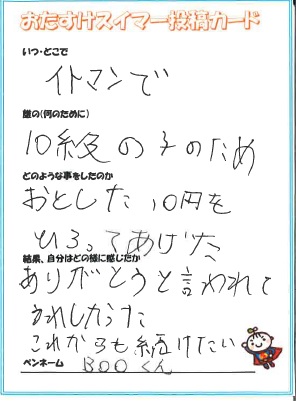 おたすけスイマー投稿カード
いつ・どこで
イトマンで
誰の(何のために)
10級の子のため
どのような事をしたのか
おとした10円を
ひろってあげた
結果、自分はどの様に感じたか
ありがとうと言われて
うれしかった
これからも続けたい
ペンネーム BOOくん